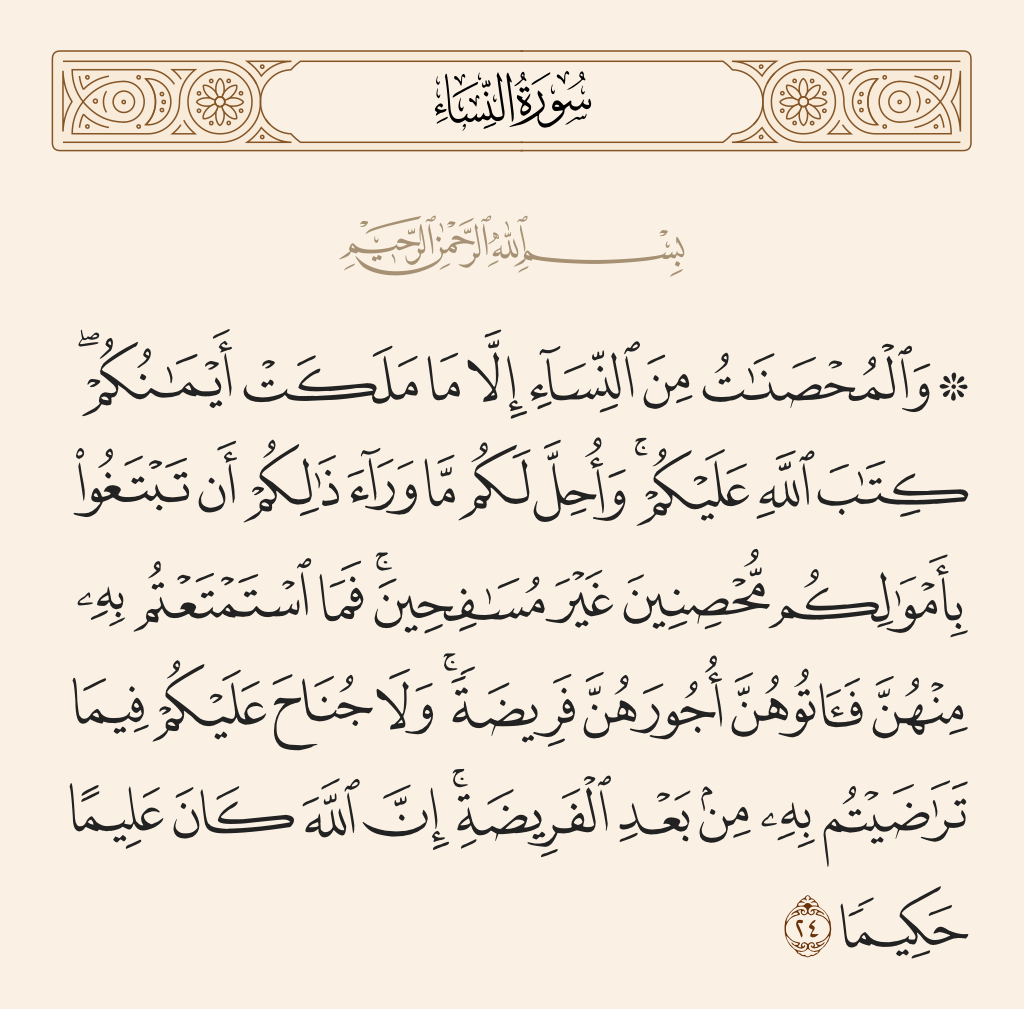 سُورَةُ النِّسَاءِ
بِسْمِ ٱللَّهِ ٱلرَّحْمَٰنِ ٱلرَّحِيمِ
۞ وَٱلْمُحْصَنَـٰتُ مِنَ ٱلنِّسَآءِ إِلَّا مَا مَلَكَتْ أَيْمَـٰنُكُمْ ۖ
كِتَـٰبَ ٱللَّهِ عَلَيْكُمْ ۚ وَأُحِلَّ لَكُم مَّا وَرَآءَ ذَٰلِكُمْ أَن تَبْتَغُوا۟
بِأَمْوَٰلِكُم مُّحْصِنِينَ غَيْرَ مُسَـٰفِحِينَ ۚ فَمَا ٱسْتَمْتَعْتُم بِهِۦ
مِنْهُنَّ فَـَٔاتُوهُنَّ أُجُورَهُنَّ فَرِيضَةً ۚ وَلَا جُنَاحَ عَلَيْكُمْ فِيمَا
تَرَٰضَيْتُم بِهِۦ مِنۢ بَعْدِ ٱلْفَرِيضَةِ ۚ إِنَّ ٱللَّهَ كَانَ عَلِيمًا
حَكِيمًا ٢٤